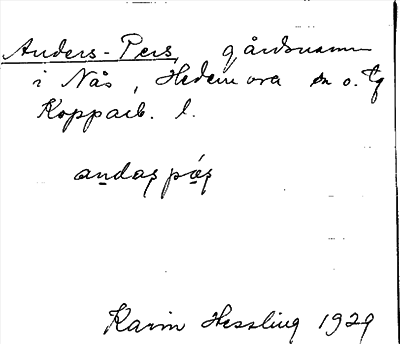 Anders-Pers, gårdsnamn
i Nås, Hedemora sn o. tg
Kopparb. l.
andas pæs
Karin Hessling 1929